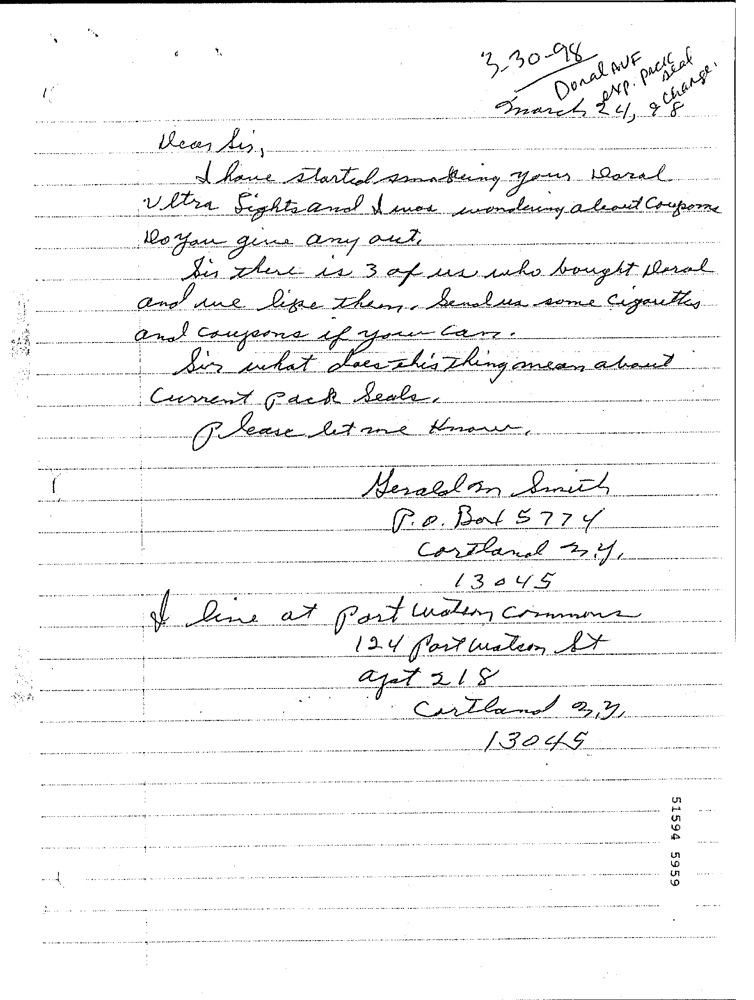 3-30-98
Doral AVF
exp. pack
seal
change.
March 24, 98
Dear Sir,
I have started smokeing your Doral
Ultra Lights and I was wondering about Coupons
Do you give any out.
Sir there is 3 of us who bought Doral
and we like them. Send us some Cigarettes
and coupons if you can.
Sir what does this thing mean about
Current Pack Seals.
Please let me Know.
Gerald M Smith
P.O. Box 5774
Cortland N.Y.
13045
I live at Port Watson Commons
124 Port Watson St
Apt 218
Cortland N.Y.
13045
51594 5959